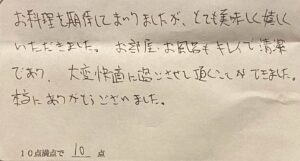 お料理も期待してまいりましたが、とても美味しく嬉しく
いただきました。お部屋・お風呂もキレイで清潔
であり、大変快適に過ごさせて頂くことができました。
本当にありがとうございました。
10点満点で 10 点